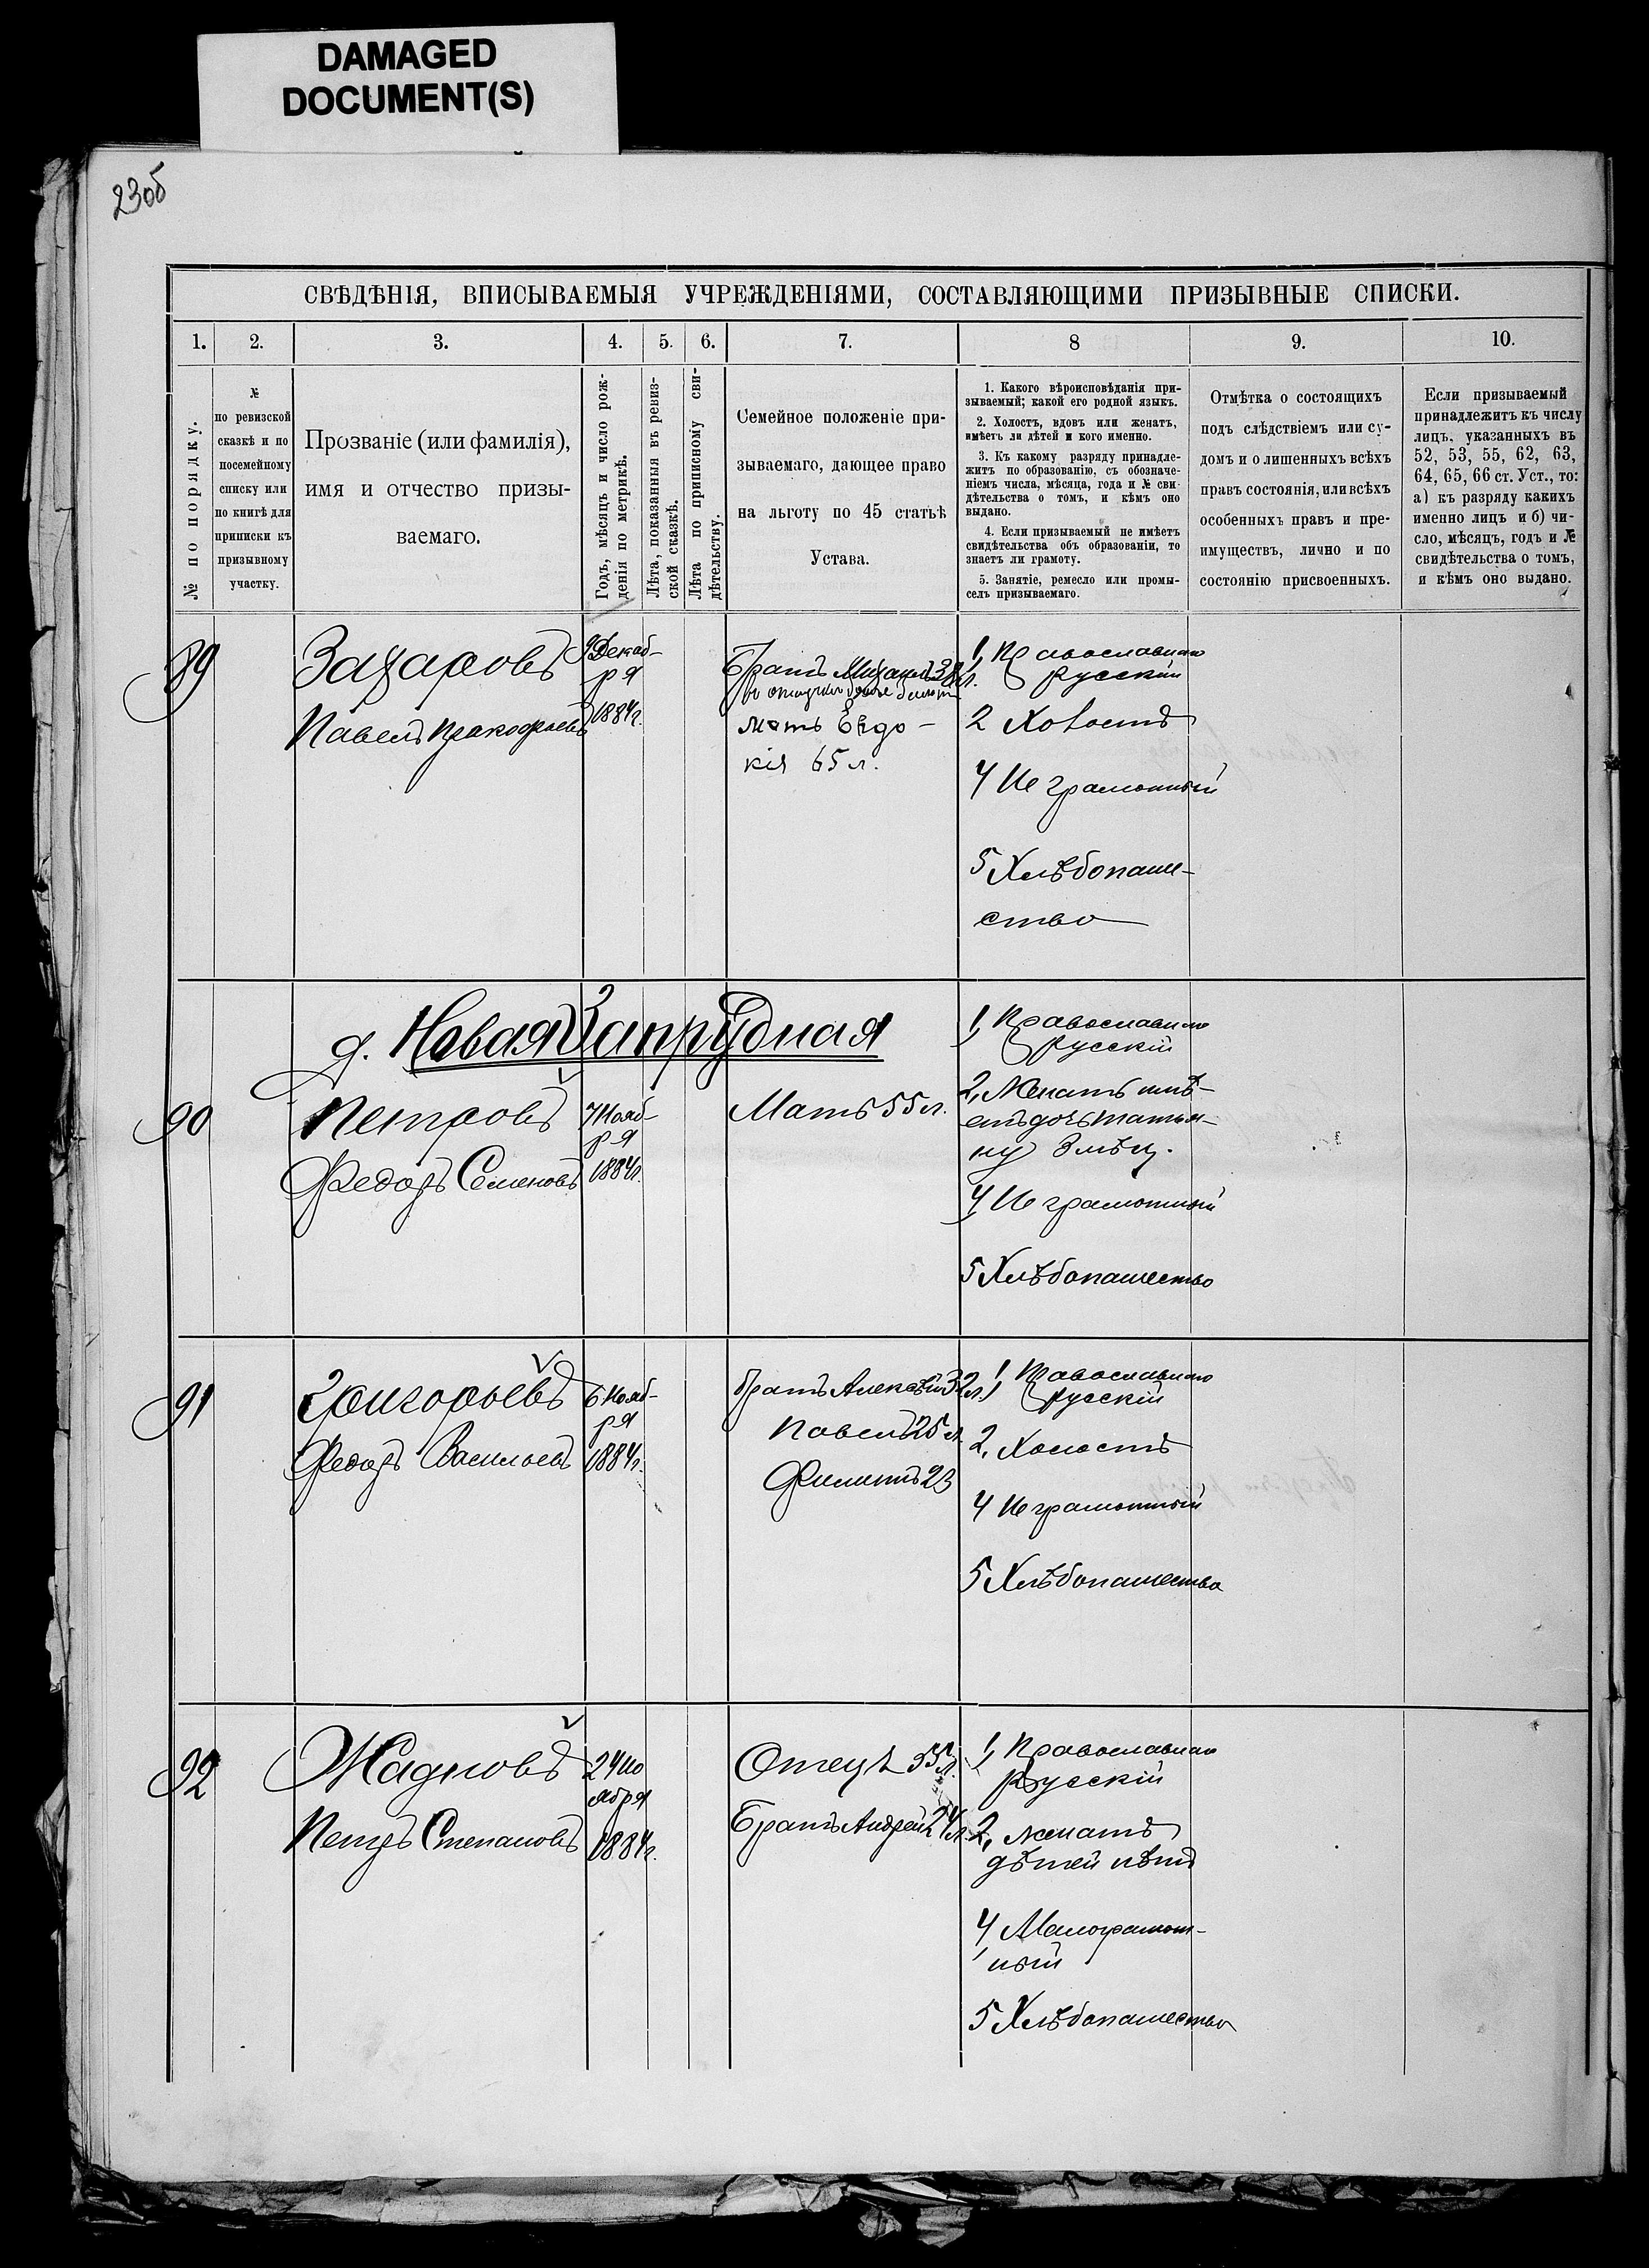 DAMAGED
DOCUMENT(S)
230б
СВѢДѢНІЯ, ВПИСЫВАЕМЫЯ УЧРЕЖДЕНІЯМИ, СОСТАВЛЯЮЩИМИ ПРИЗЫВНЫЕ СПИСКИ.
1. 2. 3. 4. 5. 6. 7. 8 9. 10.
№ по порядку.
№
по ревизской
сказкѣ и по
посемейному
списку или
по книгѣ для
приписки къ
призывному
участку.
Прозваніе (или фамилія),
имя и отчество призы-
ваемаго.
Годъ, мѣсяцъ и число рож-
денія по метрикѣ.
Лѣта, показанныя въ ревиз-
ской сказкѣ.
Лѣта по приписному сви-
дѣтельству.
Семейное положеніе при-
зываемаго, дающее право
на льготу по 45 статьѣ
Устава.
1. Какого вѣроисповѣданія при-
зываемый; какой его родной языкъ.
2. Холостъ, вдовъ или женатъ,
имѣетъ ли дѣтей и кого именно.
3. Къ какому разряду принадле-
житъ по образованію, съ обозначе-
ніемъ числа, мѣсяца, года и № сви-
дѣтельства о томъ, и кѣмъ оно
выдано.
4. Если призываемый не имѣетъ
свидѣтельства объ образованіи, то
знаетъ ли грамоту.
5. Занятіе, ремесло или промы-
селъ призываемаго.
Отмѣтка о состоящихъ
подъ слѣдствіемъ или су-
домъ и о лишенныхъ всѣхъ
правъ состоянія, или всѣхъ
особенныхъ правъ и пре-
имуществъ, лично и по
состоянію присвоенныхъ.
Если призываемый
принадлежитъ къ числу
лицъ, указанныхъ въ
52, 53, 55, 62, 63,
64, 65, 66 ст. Уст., то:
а) къ разряду какихъ
именно лицъ и б) чи-
сло, мѣсяцъ, годъ и №
свидѣтельства о томъ,
и кѣмъ оно выдано.
89
Захаровъ
Павелъ Пракофьевъ
9 Декаб-
ря
1884 г.
Братъ Михаилъ 38 л.
мать Евдо-
кія 65 л.
1, Православнаго
русскій
2 Холостъ
4 Не грамотный
5 Хлѣбопаше-
ство
д. Новая Запрудная
90
Петровъ
Федоръ Семеновъ
7 Нояб-
ря
1884 г.
Мать 55 л.
1, Православнаго
русскій
2, Женатъ имѣ-
етъ дочь Татья-
ну 3 мѣсц.
4 Не грамотный
5 Хлѣбопашество
91
Григорьевъ
Федоръ Васильевъ
6 Нояб-
ря
1884 г.
братъ Алексѣй 32 л.
Павелъ 25 л.
Филипъ 23
1, Православнаго
русскій
2, Холостъ
4 Не грамотный
5 Хлѣбопашество
92
Жадновъ
Петръ Степановъ
24 Но
ября
1884 г.
Отецъ 55 л.
Братъ Андрей 24 л.
1, Православнаго
русскій
2, женатъ
дѣтей нѣтъ
4 Малограмот-
ный
5 Хлѣбопашество